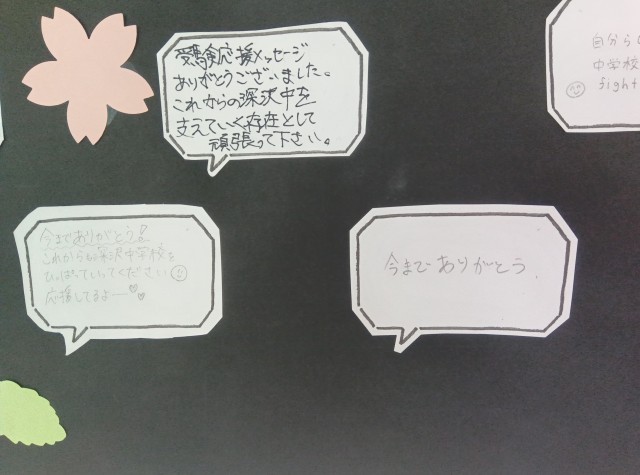 受験応援メッセージ
ありがとうございました。
これからの深沢中を
支えていく存在として
頑張って下さい。
自分らし
中学校
fight
今までありがとう!
これからも深沢中学校を
ひっぱっていってください
応援してるよー
今までありがとう.